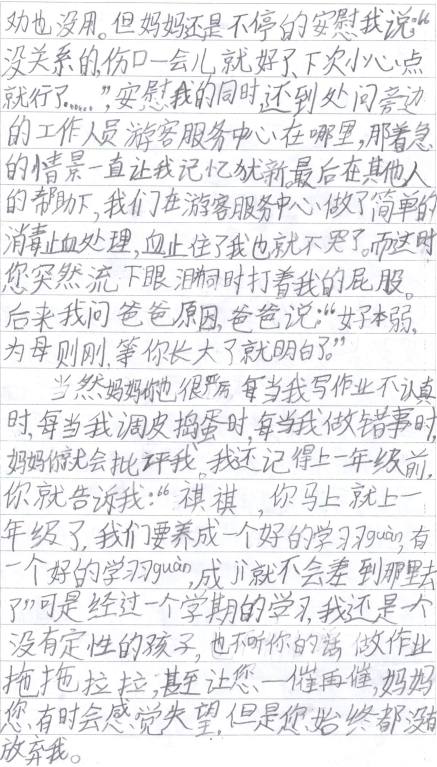 劝也没用。但妈妈还是不停的安慰我说:“
没关系的,伤口一会儿就好了,下次小心点
就行了……”,安慰我的同时,还到处问旁边
的工作人员游客服务中心在哪里,那着急
的情景一直让我记忆犹新。最后在其他人
的帮助下,我们在游客服务中心做了简单的
消毒止血处理,血止住了我也就不哭了。而这时
您突然流下眼泪同时打着我的屁股。
后来我问爸爸原因,爸爸说:“女子本弱,
为母则刚,等你长大了就明白了。”
当然妈妈你也很严厉,每当我写作业不认真
时,每当我调皮捣蛋时,每当我做错事时,
妈妈你就会批评我。我还记得上一年级前,
你就告诉我:“祺祺,你马上就上一
年级了,我们要养成一个好的学习习guàn,有
一个好的学习习guàn,成jì就不会差到那里去
了”可是经过一个学期的学习,我还是一个
没有定性的孩子,也不听你的话,做作业
拖拖拉拉,甚至让您一催再催,妈妈
您有时会感觉失望,但是您始终都没有
放弃我。